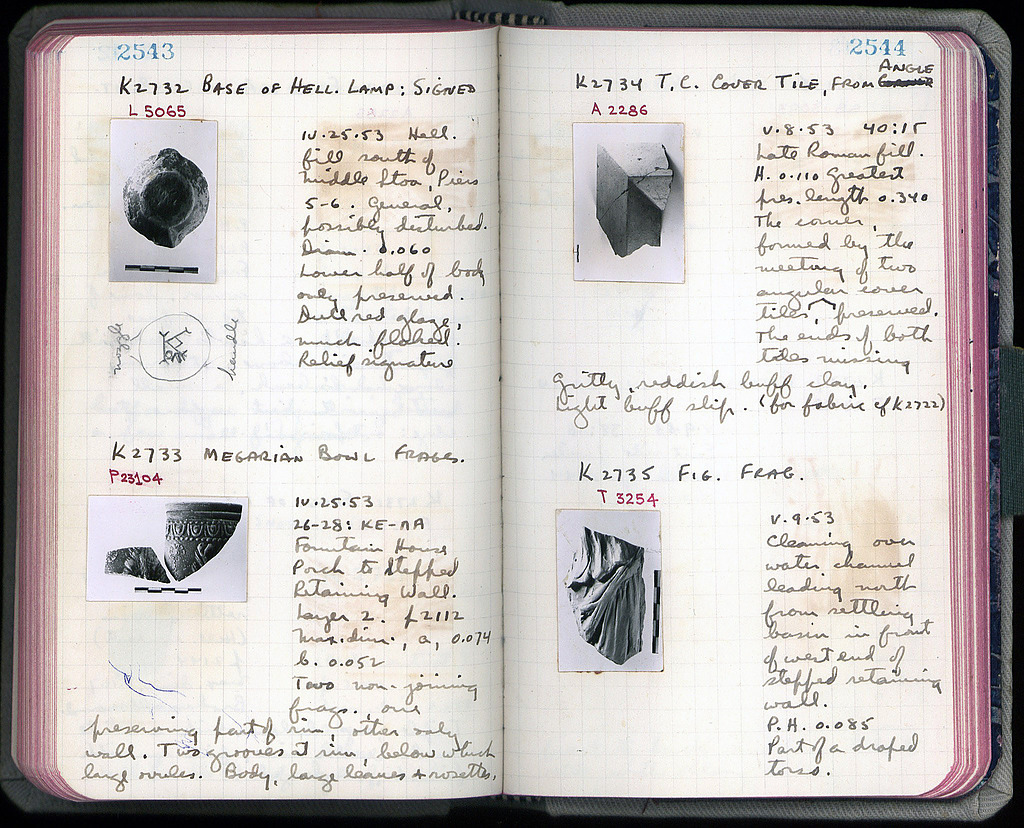 2543
K2732 BASE OF HELL. LAMP: SIGNED
L 5065
IV.25.53 Hell.
fill south of
Middle Stoa, Piers
5-6. General,
possibly disturbed.
Diam. 0.060
Lower half of body
only preserved.
Dull red glaze,
much flaked.
Relief signature
handle
K2733 MEGARIAN BOWL FRAGS.
P23104
IV.25.53
26-28: KE-ΛΑ
Fountain House
Porch to Stepped
Retaining Wall.
Layer 2. f 2112
Max. dim; a, 0.074
b. 0.052
Two non-joining
frags., one
preserving part of rim, other only
wall. Two grooves at rim, below which
large ovules. Body, large leaves + rosettes.
2544
K2734 T.C. COVER TILE, FROM ANGLE
A 2286
V.8.53 40:15
Late Roman fill.
H. 0.110 Greatest
pres. length 0.340
The corner,
formed by the
meeting of two
angular cover
tiles, preserved.
The ends of both
tiles missing
Gritty, reddish buff clay.
Light buff slip. (for fabric cf K2722)
K2735 FIG. FRAG.
T 3254
V.9.53
Cleaning over
water channel
leading north
from settling
basin in front
of west end of
stepped retaining
wall.
P.H. 0.085
Part of a draped
torso.